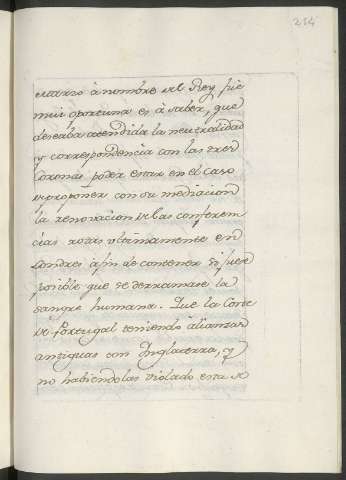 234
Marzo à nombre del Rey fue
mui oportuna es à saber, que
deseaba atendida la neutralidad
y correspondencia con las tres
Coronas poder estar en el caso
de proponer con su mediacion
la renovacion de las conferen
cias rotas ultimamente en
Londres à fin de contener si fuese
posible que se derramase la
sangre humana. Que la Corte
de Portugal teniendo alianzas
antiguas con Inglaterra, y
no habiendolas violado esta se